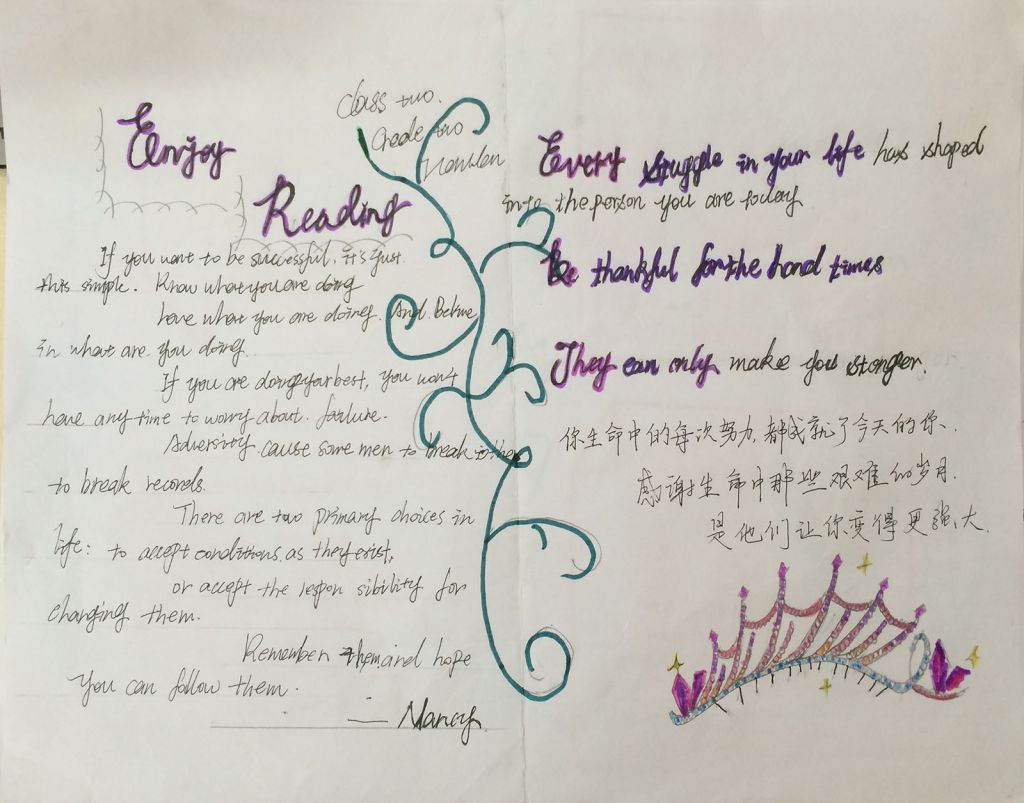 Enjoy
Reading
Class two.
Grade two
If you want to be successful, it's just
this simple. Know what you are doing
Love what you are doing. And Belive
in what are you doing.
If you are doing your best, you won't
have any time to worry about failure.
Adversity cause some men to break
to break records.
There are two primary choices in
life: to accept conditions as they exist,
or accept the respon sibility for
changing them.
Remember them and hope
you can follow them.
— Nancy
Every struggle in your life has shaped
into the person you are today
Be thankful for the hard times
They can only make you stonger.
你生命中的每次努力,都成就了今天的你.
感谢生命中那些艰难的岁月.
是他们让你变得更强大.